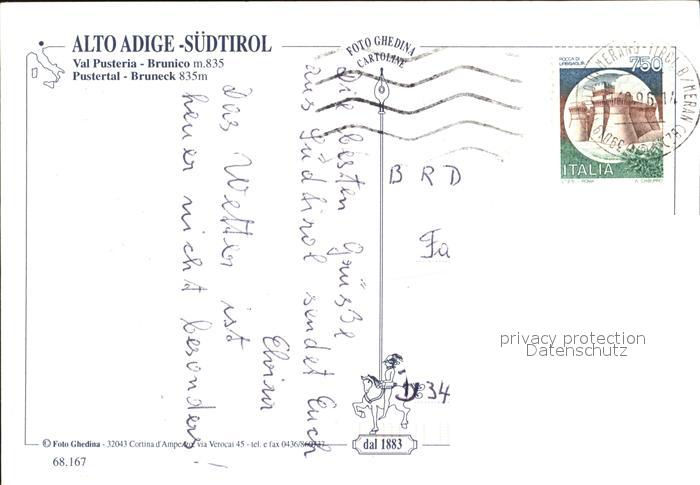 ALTO ADIGE - SÜDTIROL
Val Pusteria - Brunico m.835
Pustertal - Bruneck 835m
FOTO GHEDINA
CARTOLINE
ROCCA DI
URBISAGLIA
750
ITALIA
I.P.Z.S. - ROMA
Die besten Grüße
aus Südtirol sendet Euch
Elvira
Das Wetter ist
heuer nicht besonders!
B R D
Fa
D 34
privacy protection
Datenschutz
dal 1883
© Foto Ghedina - 32043 Cortina d'Ampezzo, via Verocai 45 - tel. e fax 0436/
68.167